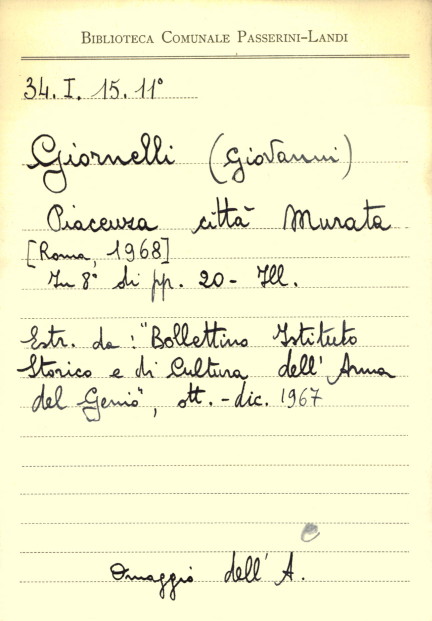 BIBLIOTECA COMUNALE PASSERINI-LANDI
34. I. 15. 11°
Giornelli (Giovanni)
Piacenza città Murata
[Roma, 1968]
In 8° di pp. 20 - Ill.
Estr. da: "Bollettino Istituto
Storico e di Cultura dell'Arma
del Genio", ott. - dic. 1967
Omaggio dell'A.